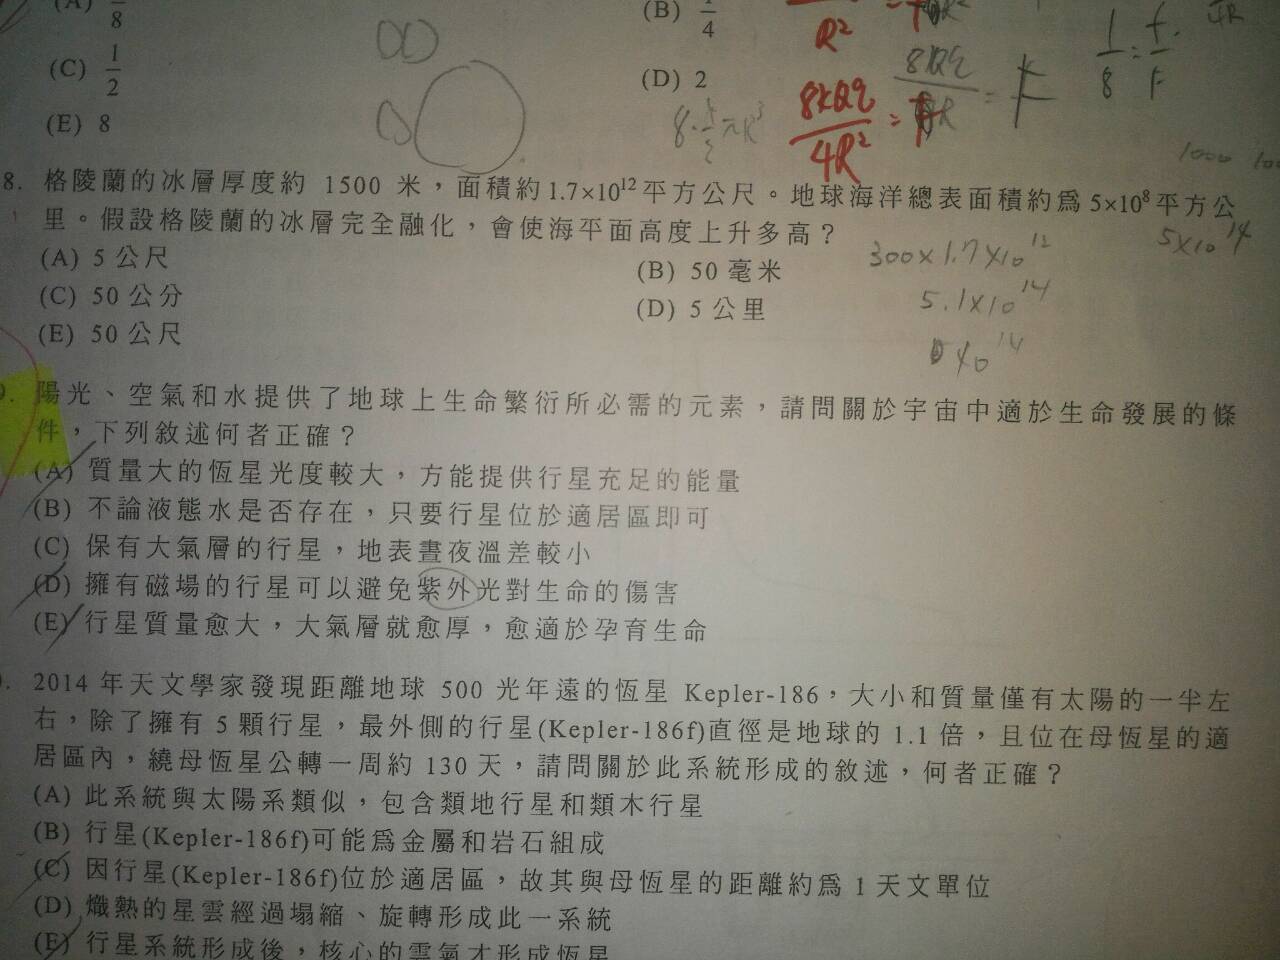 (A) 8
(B) 4
(C) 1/2
(D) 2
(E) 8
8KQq/4R² =
1/8 = f/F
8. 格陵蘭的冰層厚度約 1500 米，面積約1.7×10¹²平方公尺。地球海洋總表面積約為 5×10⁸平方公
里。假設格陵蘭的冰層完全融化，會使海平面高度上升多高？
(A) 5 公尺
(B) 50 毫米
(C) 50 公分
(D) 5 公里
(E) 50 公尺
5×10 14
300×1.7×10 12
5.1×10 14
陽光、空氣和水提供了地球上生命繁衍所必需的元素，請問關於宇宙中適於生命發展的條
件，下列敘述何者正確？
(A) 質量大的恆星光度較大，方能提供行星充足的能量
(B) 不論液態水是否存在，只要行星位於適居區即可
(C) 保有大氣層的行星，地表晝夜溫差較小
(D) 擁有磁場的行星可以避免紫外光對生命的傷害
(E) 行星質量愈大，大氣層就愈厚，愈適於孕育生命
2014 年天文學家發現距離地球 500 光年遠的恆星 Kepler-186，大小和質量僅有太陽的一半左
右，除了擁有 5 顆行星，最外側的行星(Kepler-186f)直徑是地球的 1.1 倍，且位在母恆星的適
居區內，繞母恆星公轉一周約 130 天，請問關於此系統形成的敘述，何者正確？
(A) 此系統與太陽系類似，包含類地行星和類木行星
(B) 行星(Kepler-186f)可能為金屬和岩石組成
(C) 因行星(Kepler-186f)位於適居區，故其與母恆星的距離約為 1 天文單位
(D) 熾熱的星雲經過塌縮、旋轉形成此一系統
(E) 行星系統形成後，核心的雲氣才形成恆星